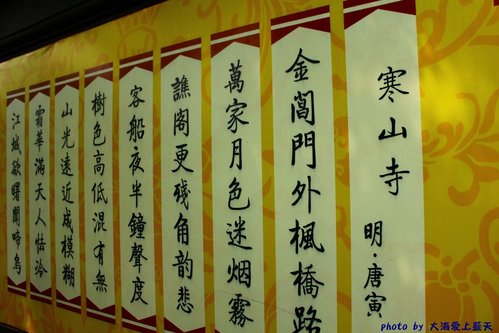 寒山寺 明·唐寅
金閶門外楓橋路
萬家月色迷烟霧
譙閣更殘角韵悲
客船夜半鐘聲度
樹色高低混有無
山光遠近成模糊
霜華滿天人怯冷
江城欲曙聞啼烏
photo by 大海爱上蓝天